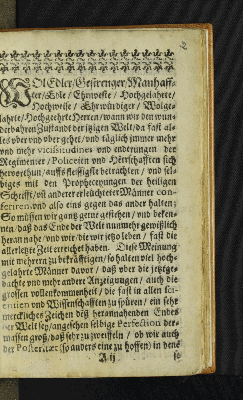 2
WOlEdler/Gestrenger/Manhaff-
ter/Edle/Ehrnveste/Hochgelahrte/
Hochweise/Ehrwürdiger/Wolge-
lahrte/Hochgeehrte Herren/wann wir den wun-
derbahren Zustand der jtzigen Welt/da fast al-
les ober und ober gehet/und täglich immer mehr
und mehr vicissitudines und enderungen der
Regimenter/Policeien und Herrschafften sich
hervorthun/auffs fleissigste betrachten/und sel-
biges mit den Propheceyungen der heiligen
Schrifft/uñ anderer erleuchteter Männer con-
feriren und also eins gegen das ander halten;
So müssen wir gantz gerne gestehen/und beken-
nen/daß das Ende der Welt nunmehr gewißlich
heran nahe/und wir/die wir jetzo leben/fast die
allerletzte Zeit erreichet haben. Diese Meinung
mit mehrern zu bekräfftigen/so halten viel hoch-
gelahrte Männer davor/daß ober die jetztge-
dachte und mehr andere Anzeigungen/auch die
grossen vollenkommenheit/die fast in allen Sci-
entien und Wissenschafften zu spüren/ein sehr
merckliches Zeichen deß herannahenden Endes
der Welt sey/angesehen selbige Perfection der-
massen groß/daß sehr zu zweiffeln/ob wir auch
der Posteritet (so anders eine zu hoffen) in dene
A ij
so